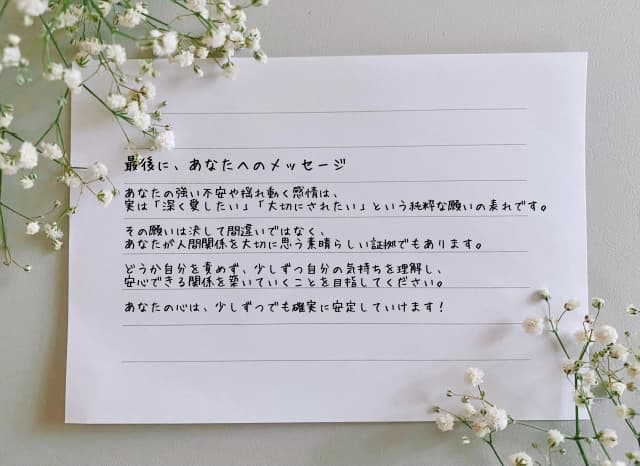 最後に、あなたへのメッセージ
あなたの強い不安や揺れ動く感情は、
実は「深く愛したい」「大切にされたい」という純粋な願いの表れです。
その願いは決して間違いではなく、
あなたが人間関係を大切に思う素晴らしい証拠でもあります。
どうか自分を責めず、少しずつ自分の気持ちを理解し、
安心できる関係を築いていくことを目指してください。
あなたの心は、少しずつでも確実に安定していけます！